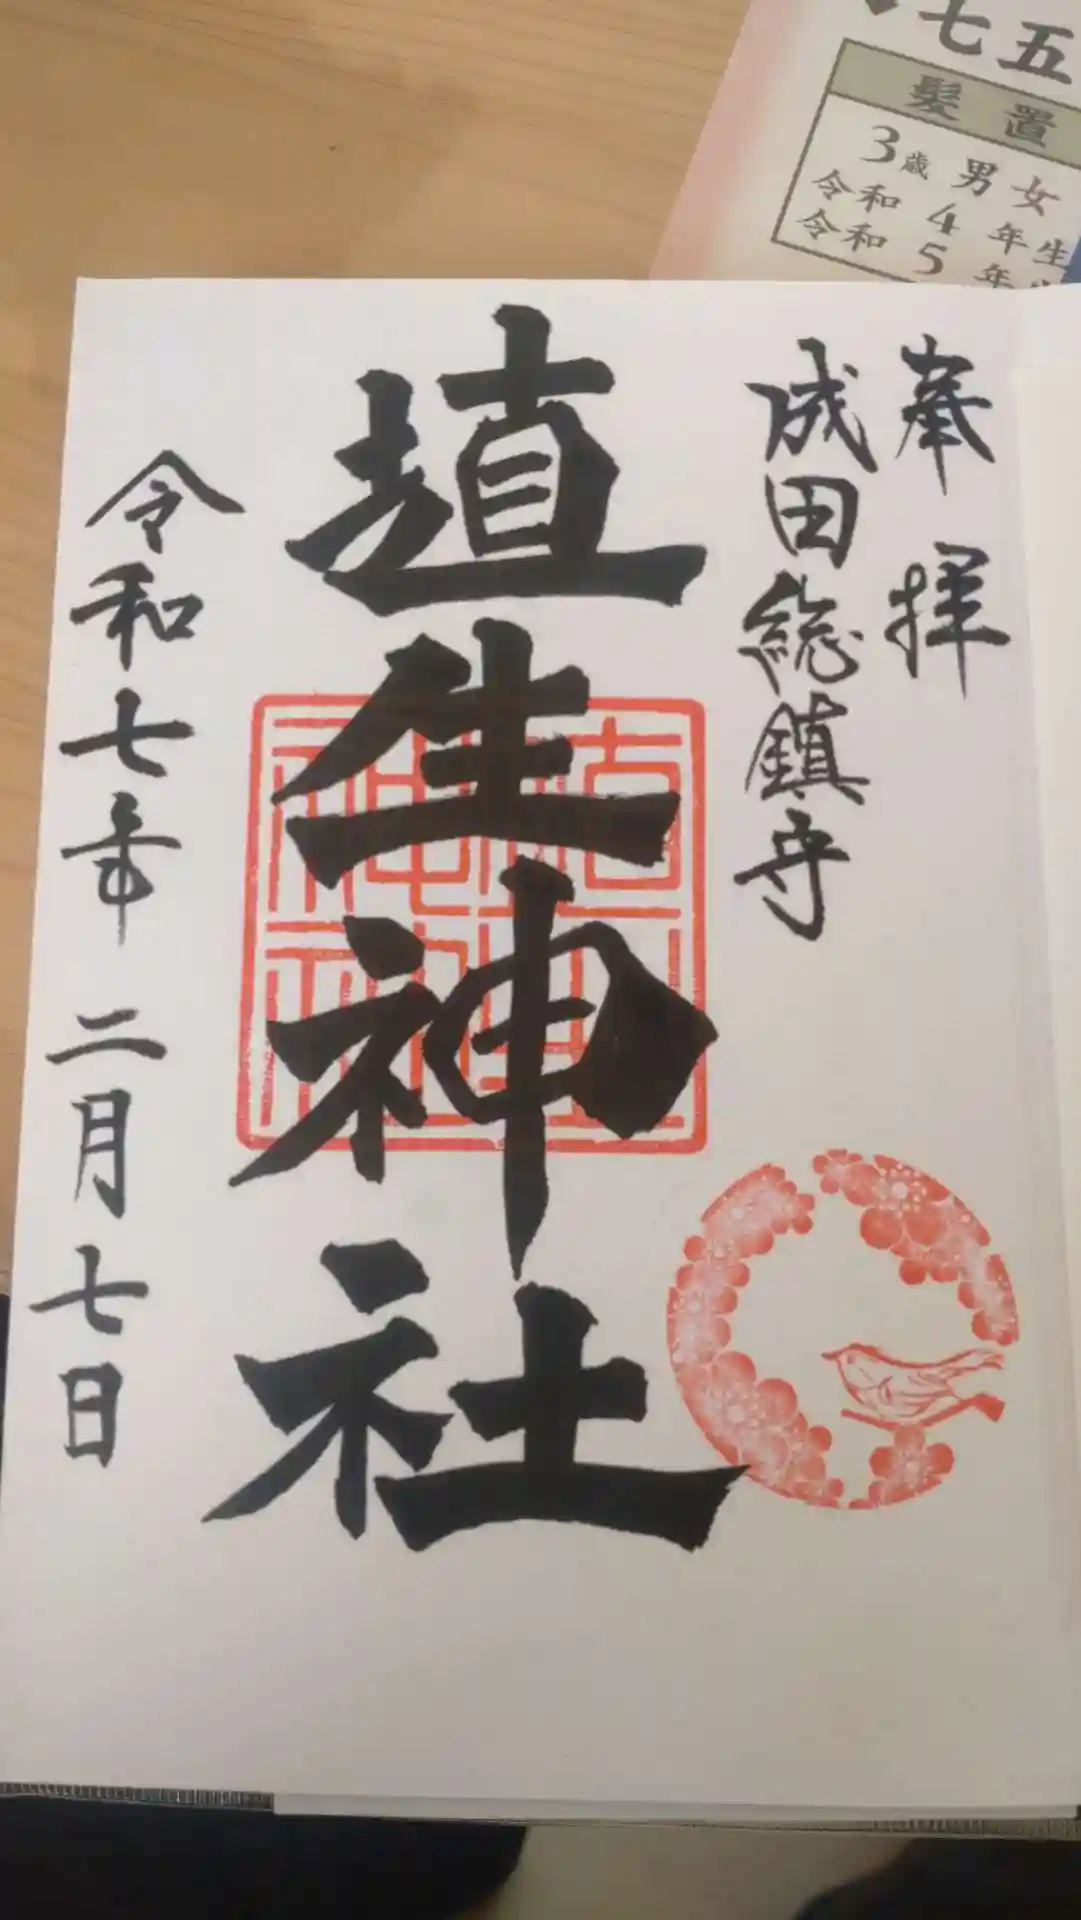 七五
髪置
3歳 男女
令和 4 年生
令和 5 年
奉拝
成田総鎮守
埴生神社
令和七年 二月七日